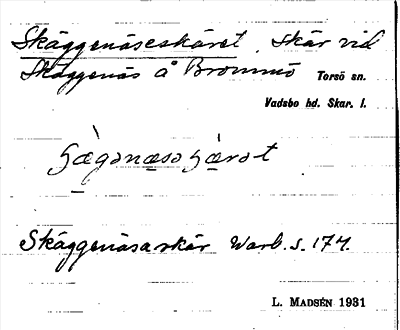 Skäggenäseskäret, skär vid
Skäggenäs å Brommö Torsö sn.
Vadsbo hd. Skar. l.
Skäggenäsaskär Warb. s. 174.
L. MADSÉN 1931